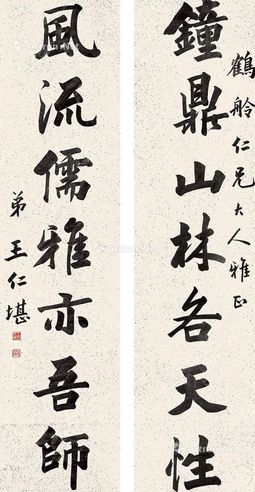 鶴舲仁兄大人雅正
鐘鼎山林各天性
風流儒雅亦吾師
弟王仁堪